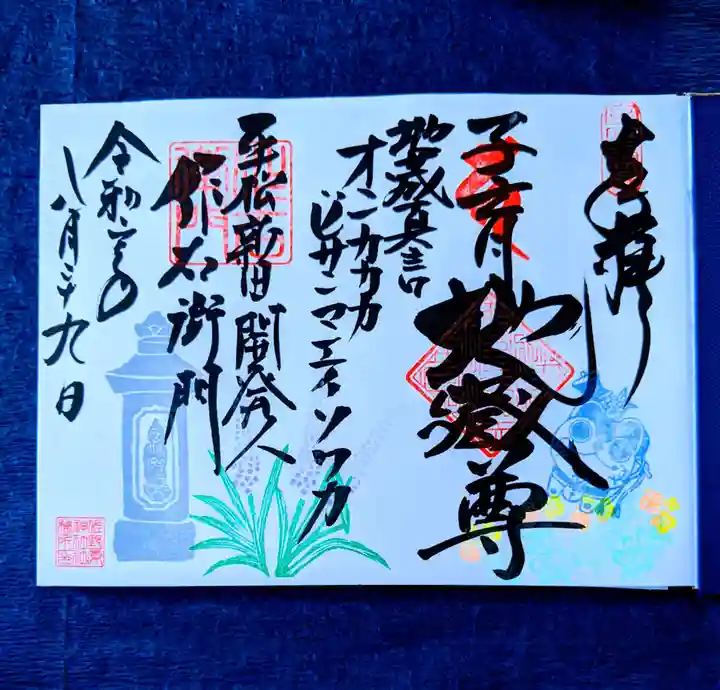 奉拝
子育 地蔵尊
地蔵真言
オンカカカ
ビサンマエイソワカ
平松新田開発人
作右衛門
令和六年
八月二十九日